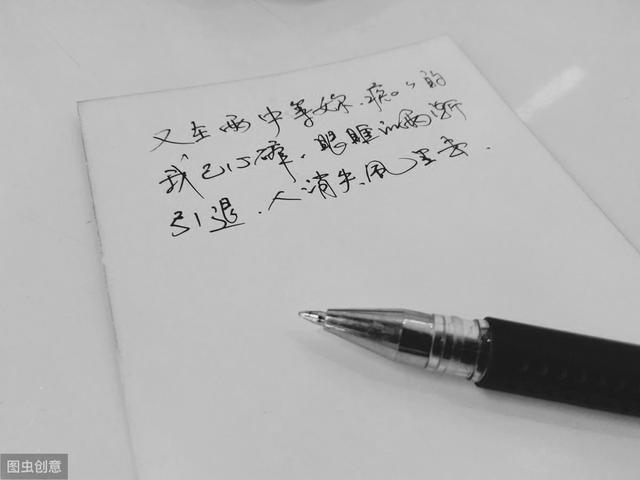 又在雨中等妳.痴心的
我已心碎.眼雨渐
引退.人消失风里去.
图虫创意